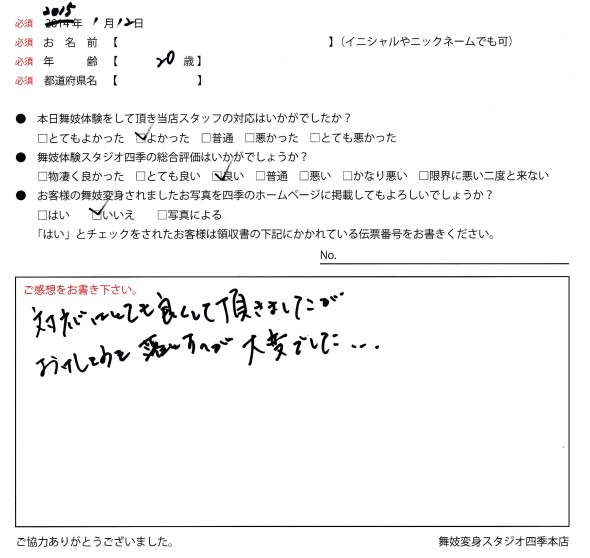 2015
必須 2014年 1月12日
必須 お名前【 】(イニシャルやニックネームでも可)
必須 年齢【 20歳】
必須 都道府県名【 】
● 本日舞妓体験をして頂き当店スタッフの対応はいかがでしたか?
□とてもよかった ☑よかった □普通 □悪かった □とても悪かった
● 舞妓体験スタジオ四季の総合評価はいかがでしょうか?
□物凄く良かった □とても良い ☑良い □普通 □悪い □かなり悪い □限界に悪い二度と来ない
● お客様の舞妓変身されましたお写真を四季のホームページに掲載してもよろしいでしょうか?
□はい ☑いいえ □写真による
「はい」とチェックをされたお客様は領収書の下記にかかれている伝票番号をお書きください。
No.
ご感想をお書き下さい。
対応はとても良くして頂きましたが
おけしょうを落とすのが大変でした...
ご協力ありがとうございました。 舞妓変身スタジオ四季本店